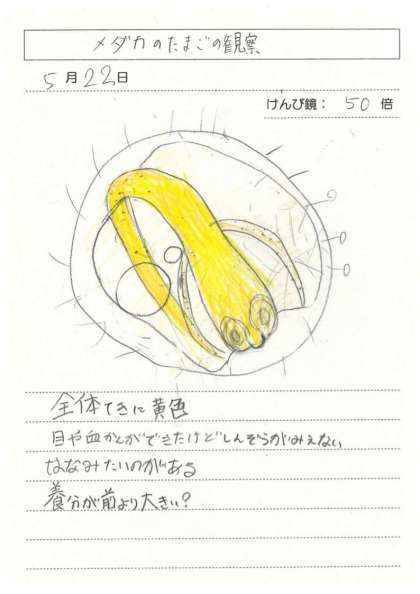 メダカのたまごの観察
5月22日
けんび鏡： 50 倍
全体てきに黄色
目や血かんができたけどしんぞうがみえない
はなみたいのがある
養分が前より大きい？